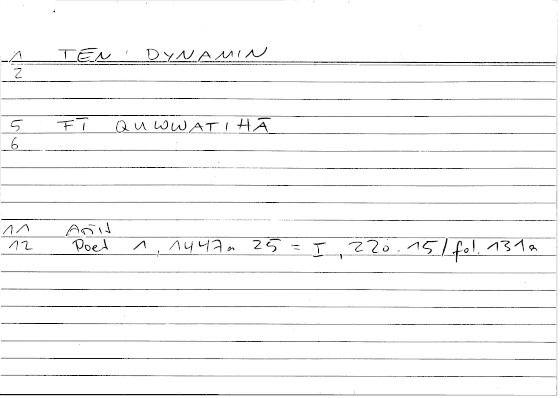 1 TEN DYNAMIN
2
5 FĪ QUWWATIHĀ
6
11 Arist
12 Poet 1, 1447a 25 = I, 220.15/fol. 131a